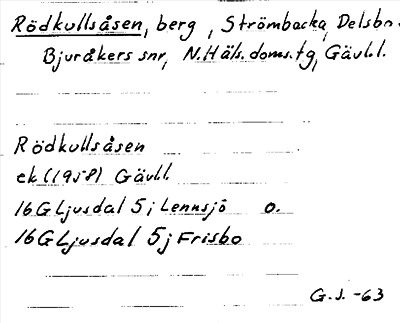 Rödkullsåsen, berg, Strömbacka, Delsbo-
Bjuråkers snr, N.Häls.doms.tg, Gävl.l.
Rödkullsåsen
ek (1958) Gävll.
16G Ljusdal 5i Lennsjö o.
16G Ljusdal 5j Frisbo
G.J. -63